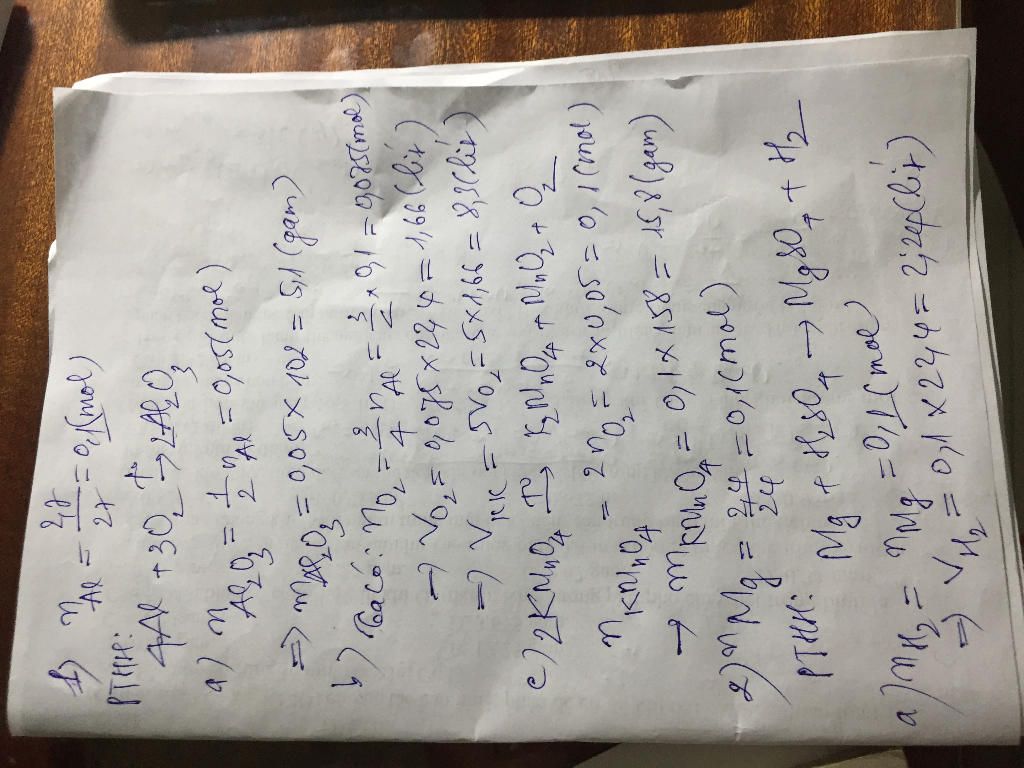 1) n Al = 2,7/27 = 0,1 (mol)
PTHH:
4Al + 3O2 t° → 2Al2O3
a) n Al2O3 = 1/2 n Al = 0,05 (mol)
=> m Al2O3 = 0,05 x 102 = 5,1 (gam)
b) Ta có: n O2 = 3/4 n Al = x 0,1 = 0,075 (mol)
→ V O2 = 0,075 x 22,4 = 1,66 (lít)
→ V KK = 5 V O2 = 5 x 1,66 = 8,3 (lít)
c) 2KMnO4 t° → K2MnO4 + MnO2 + O2
n KMnO4 = 2 n O2 = 2 x 0,05 = 0,1 (mol)
→ m KMnO4 = 0,1 x 158 = 15,8 (gam)
2) n Mg = 2,4/24 = 0,1 (mol)
PTHH: Mg + H2SO4 → MgSO4 + H2
a) n H2 = n Mg = 0,1 (mol)
=> V H2 = 0,1 x 22,4 = 2,24 (lít)